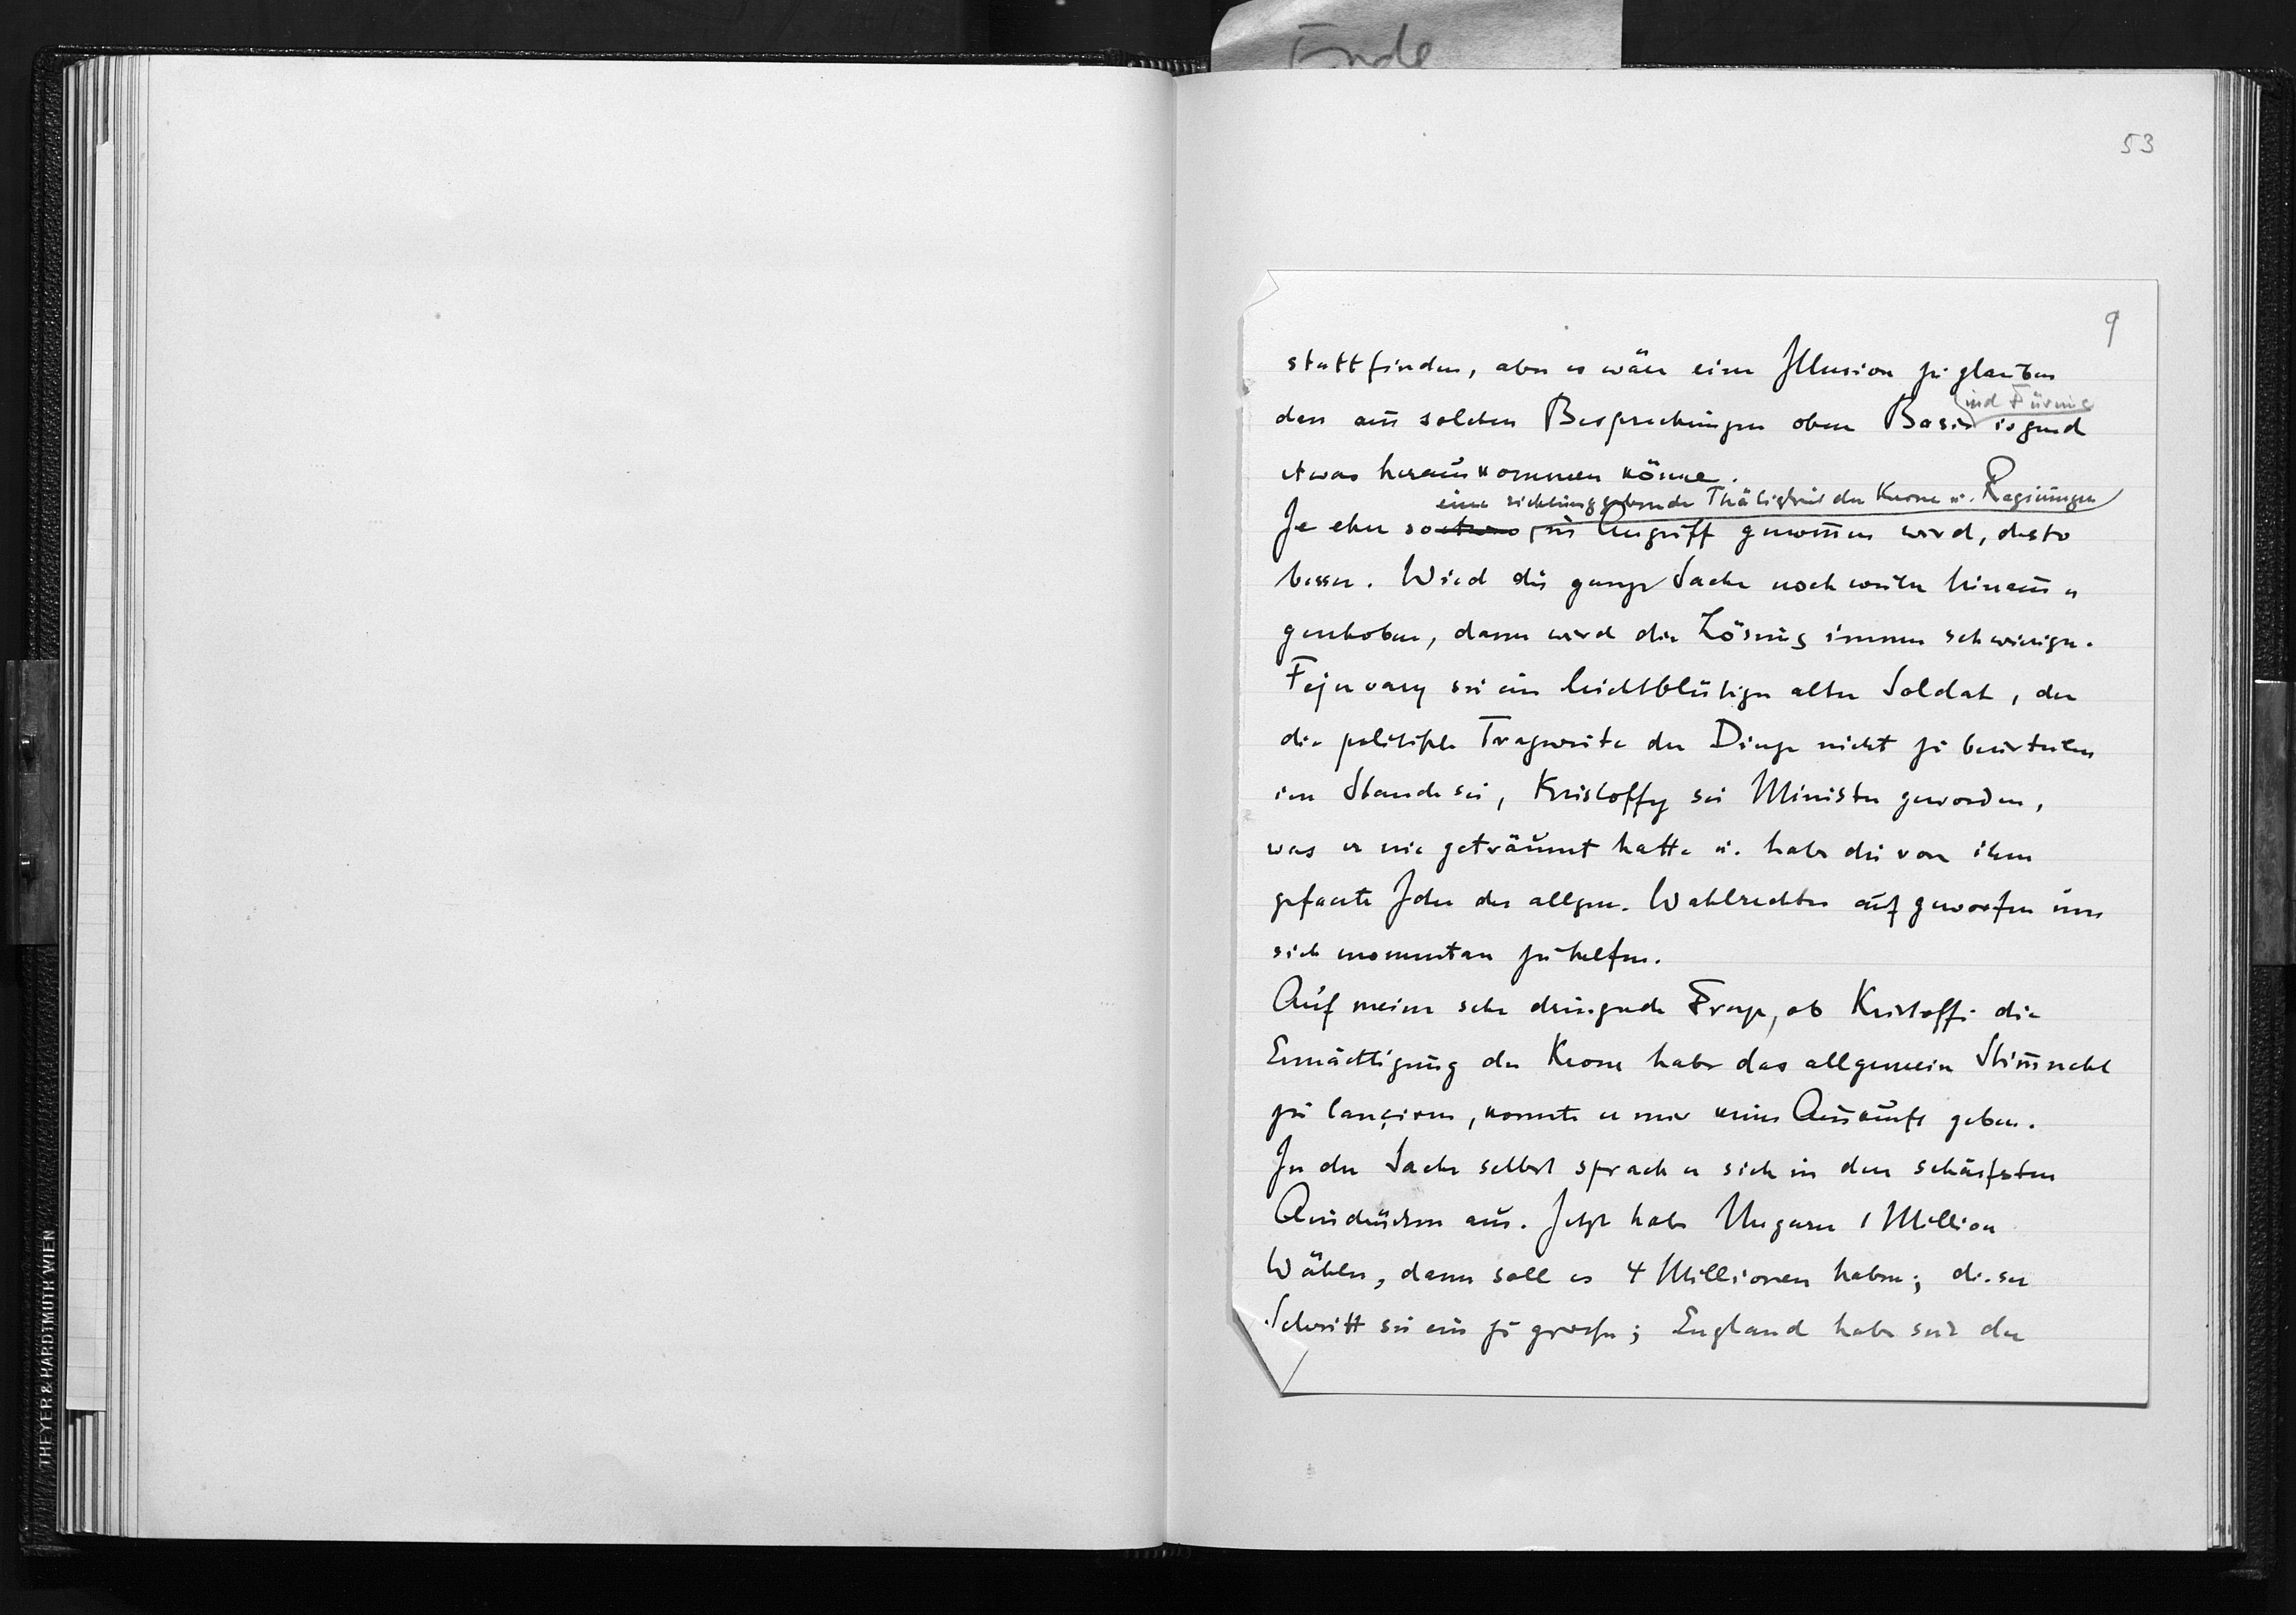 Ende
53
9
stattfinden, aber es wäre eine Illusion zu glauben
und Führung
dass aus solchen Besprechungen ohne Basis irgend
etwas herauskommen könne.
eine richtunggebende Thätigkeit der Krone u. Regierungen
Je eher so etwas in Angriff genom̅en wird, desto
besser. Wird die ganze Sache noch weiter hinaus
geschoben, dann wird die Lösung immer schwieriger.
Fejervary sei ein leichtblütiger alter Soldat, der
die politische Tragweite der Dinge nicht zu beurteilen
im Stande sei, Kristoffy sei Minister geworden,
was er nie geträumt hatte u. habe die von ihm
Idee des allgem. Wahlrechtes aufgeworfen um
sich momentan zu helfen.
Auf meine sehr dringende Frage, ob Kristoffi die
Ermächtigung der Krone habe das allgemeine Stim̅recht
zu lançiren, konnte er mir keine Auskunft geben.
In der Sache selbst sprach er sich in den schärfsten
Ausdrücken aus. Jetzt habe Ungarn 1 Million
Wähler, dann soll es 4 Millionen haben; dieser
Schritt sei ein zu großer; England habe seit der
THEYER & HARDTMUTH WIEN